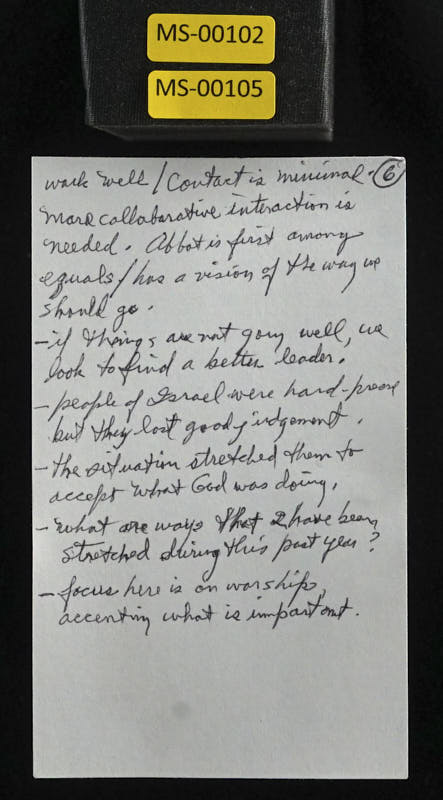 MS-00102
MS-00105
work well / Contact is minimal. 6
more collaborative interaction is
needed. Abbot is first among
equals / has a vision of the way we
should go.
- if things are not going well, we
look to find a better leader.
- people of Israel were hard-pressed
but they lost good judgement.
- the situation stretched them to
accept what God was doing.
- what are ways that I have been
stretched during this past year?
- focus here is on worship,
accenting what is important.